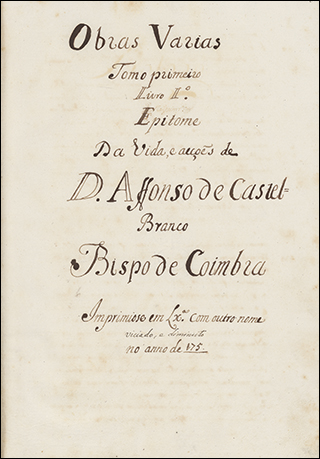 Obras Varias
Tomo primeiro
Livro 1º.
Epitome
Da Vida, e acções de
D. Affonso de Castel-
Branco
Bispo de Coimbra
Imprimiose em Lxª. com outro nome
viciado, e diminuto
no anno de 175